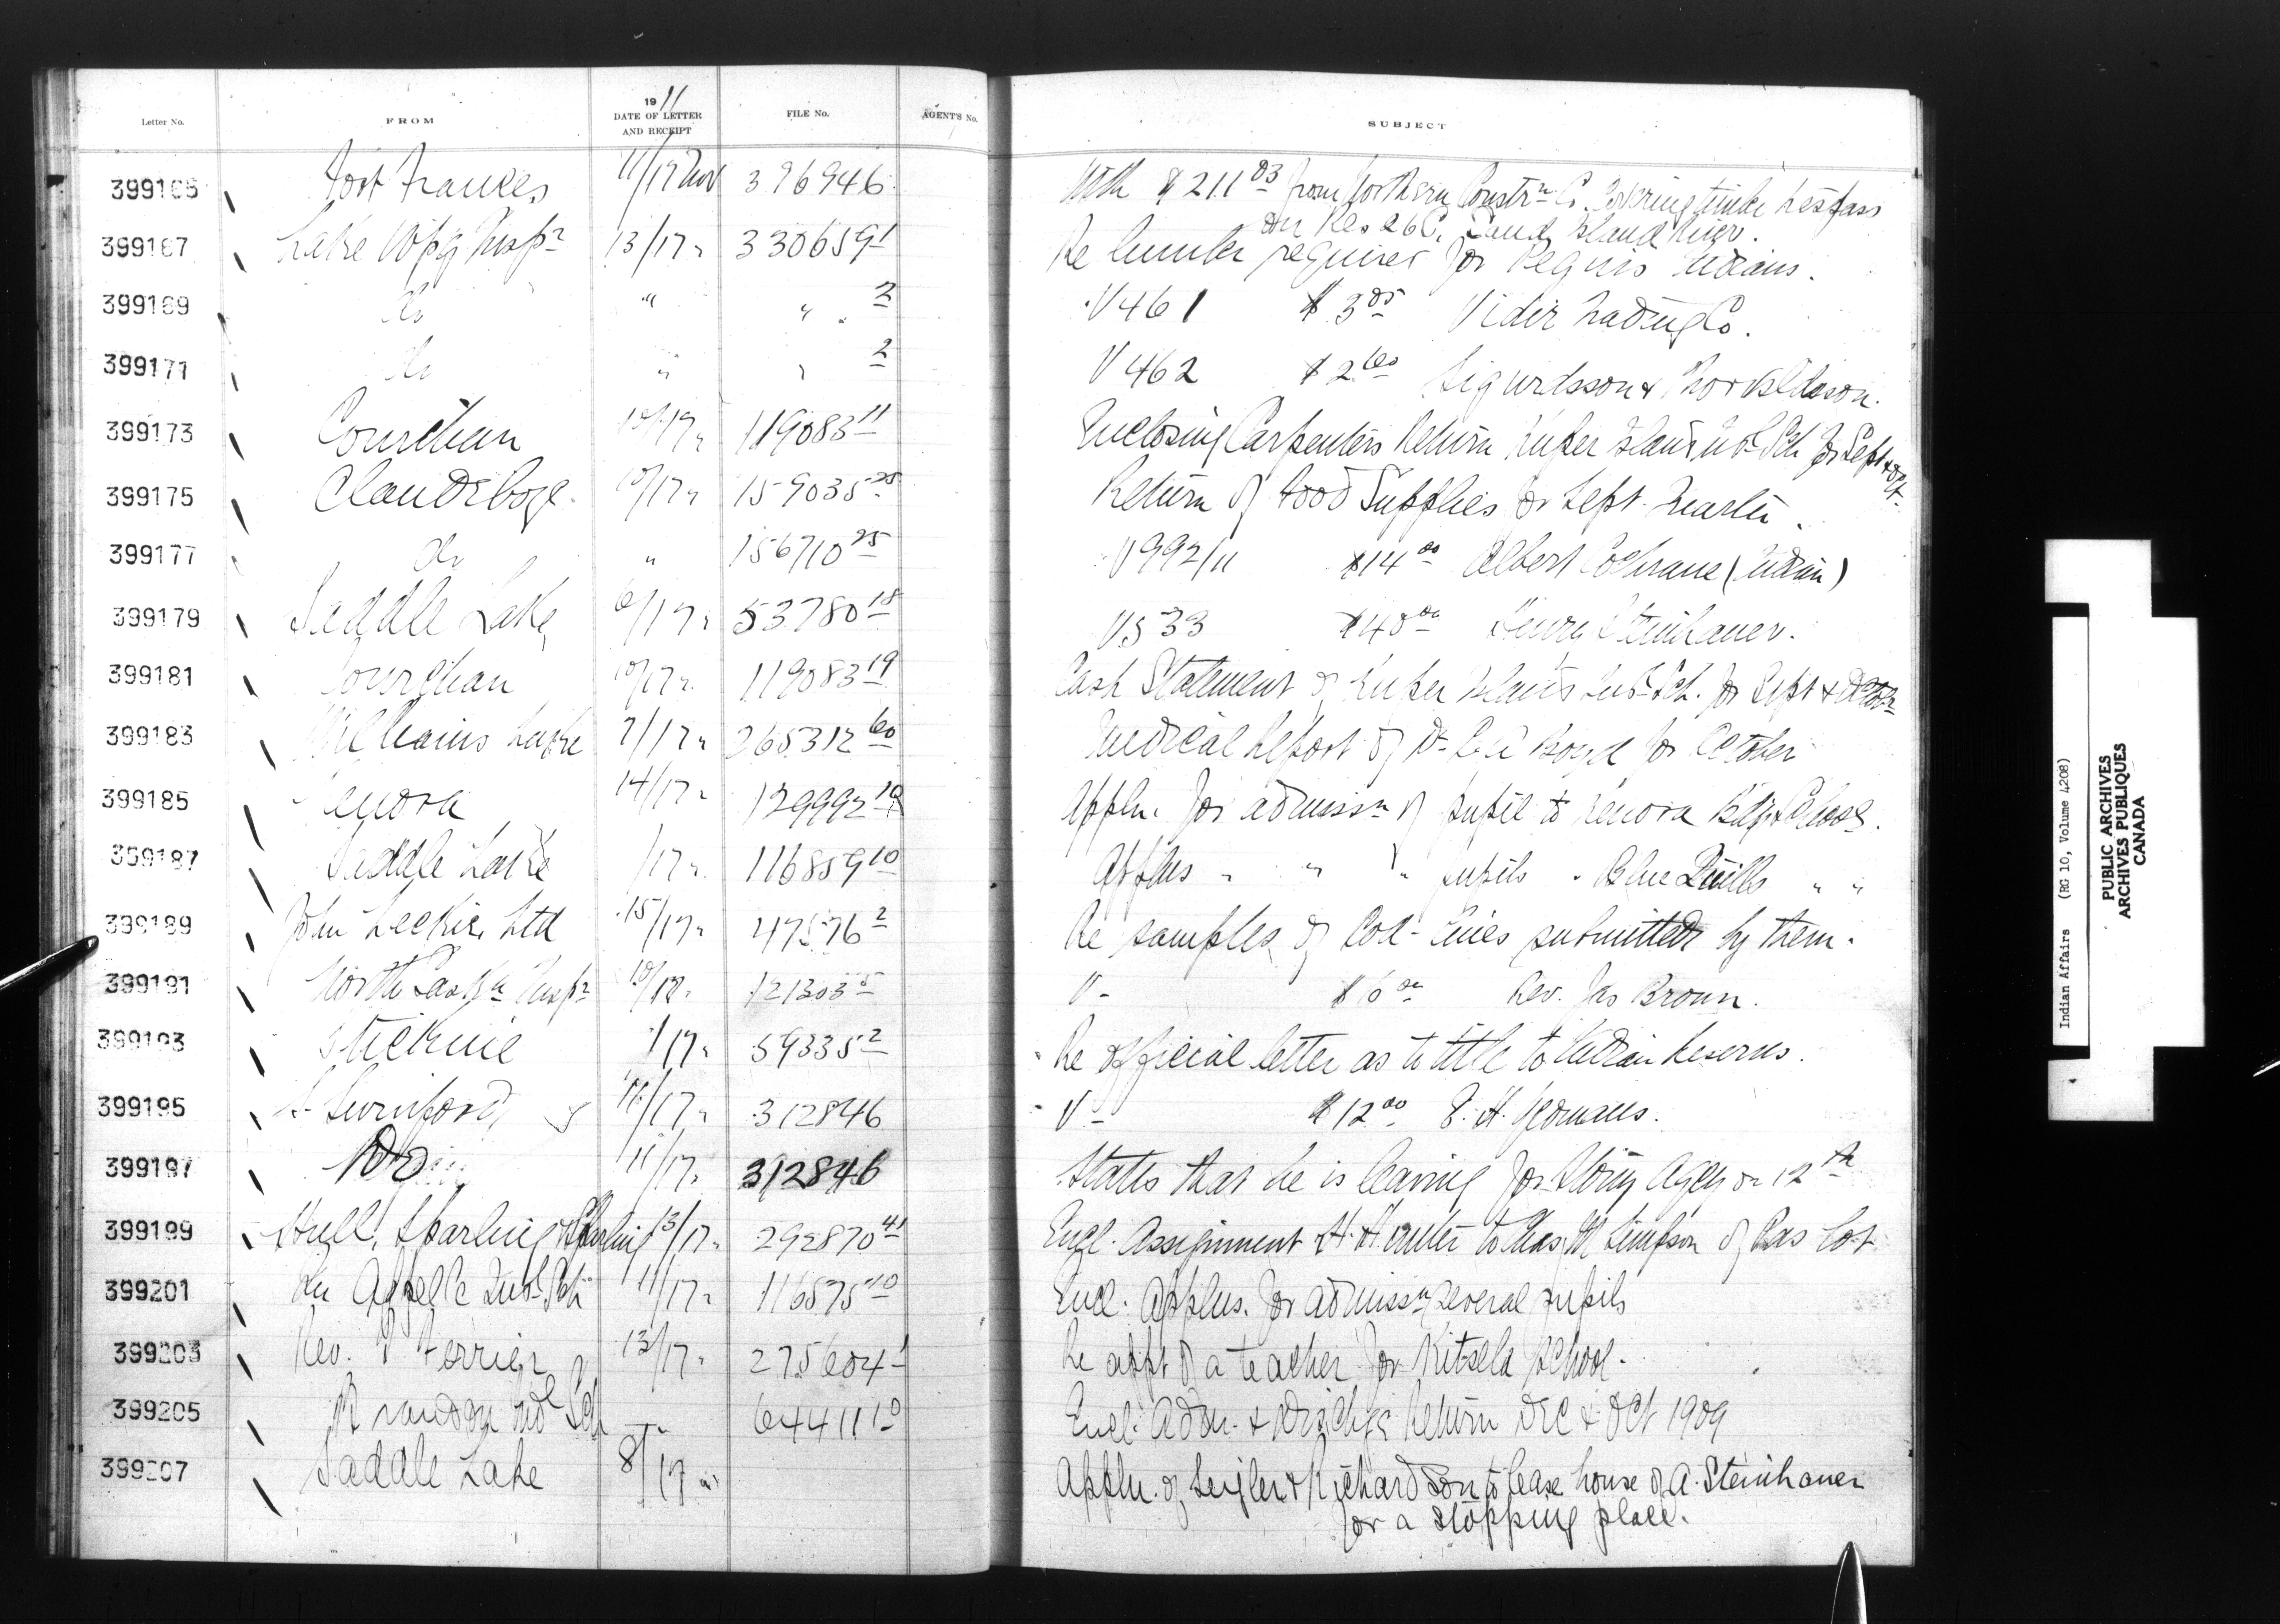 Letter No. FROM 1911 DATE OF LETTER AND RECEIPT FILE No. AGENT'S No. SUBJECT
399165 Fort Frances 11/17 Nov 396946 With $211.03 from Northern Constrn Co. covering timber trespass
on Res 26C,
399167 Lake Wpg Inspr 13/17 " 330659-1 Re lumber required for Peguis Indians.
399169 do " " " 2 V461 $3.05 Vidir Trading Co.
399171 do " " 2 V462 $2.60 Sigurdsson & Thorvaldson.
399173 Cowichan 10/17 " 119083-11 Enclosing Carpenters Return Kuper Island Indl Sch for Sept & Oct.
399175 Clandeboye 10/17 " 159035-25 Return of Food Supplies for Sept. Quarter.
399177 do " 156710-25 V992/11 $14.00 Albert Cochrane (Indian)
399179 Saddle Lake 6/17 " 53780-18 V533 $40.00 Henry Steinhauer.
399181 Cowichan 10/17 " 119083-19 Cash Statement of Kuper Island Ind Sch. for Sept & October
399183 Williams Lake 7/17 " 265312-60 Medical Report of Dr Boyd for October
399185 Kenora 14/17 " 129992-19 Appln. for admissn of pupil to Kenora Bdg School.
399187 Saddle Lake /17 " 116859-10 Applns " " " pupils " Blue Quills " "
399189 John Leckie, Ltd 15/17 " 47576-2 Re samples of Cod-lines submitted by them.
399191 North Saskn Inspr 10/17 " 121303-5 V- $6.00 Rev. Jas Brown.
399193 Stickine 1/17 " 59335-2 Re official letter as to title to Indian Reserves.
399195 S. Swinford 11/17 " 312846 V- $12.00 E. H. Yeomans.
399197 Do 11/17 " 312846 States that he is leaving for Stony Agcy on 12th
399199 Hull, Sparling & Sparling 13/17 " 292870-41 Encl. Assignment H. Hunter to Chas. M Simpson of Pas Lot
399201 Qu Appelle Indl Sch 11/17 " 116575-10 Encl. applns. for admissn several pupils
399203 Rev. T Ferrier 13/17 " 275604-1 Re appt of a teacher for Kitsela School.
399205 Brandon Indl Sch " 64411-10 Encl. Admn. & Dischge Return Dec & Oct 1909
399207 Saddle Lake 8/17 " Appln. of & Richardson to lease house of A. Steinhauer
for a stopping place.
Indian Affairs (RG 10, Volume 4208)
PUBLIC ARCHIVES
ARCHIVES PUBLIQUES
CANADA